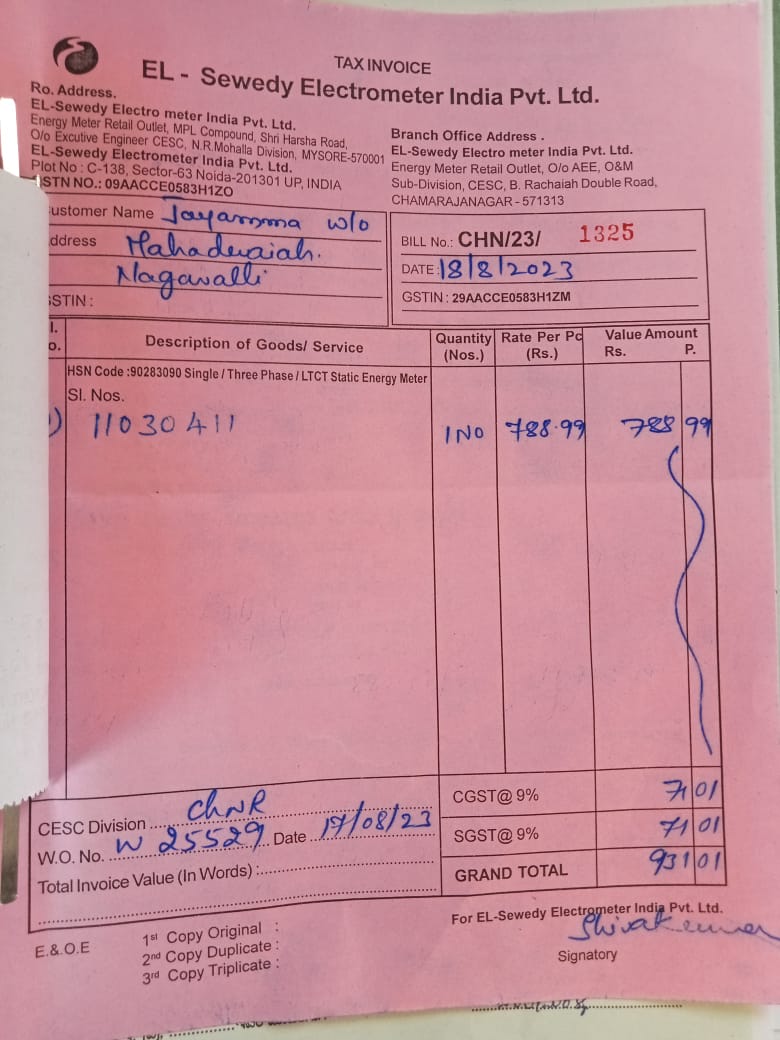 TAX INVOICE
EL - Sewedy Electrometer India Pvt. Ltd.
Ro. Address.
EL-Sewedy Electro meter India Pvt. Ltd.
Energy Meter Retail Outlet, MPL Compound, Shri Harsha Road,
O/o Excutive Engineer CESC, N.R.Mohalla Division, MYSORE-570001
EL-Sewedy Electrometer India Pvt. Ltd.
Plot No : C-138, Sector-63 Noida-201301 UP, INDIA
STN NO.: 09AACCE0583H1ZO
Branch Office Address .
EL-Sewedy Electro meter India Pvt. Ltd.
Energy Meter Retail Outlet, O/o AEE, O&M
Sub-Division, CESC, B. Rachaiah Double Road,
CHAMARAJANAGAR - 571313
ustomer Name Jayamma w/o
ddress Mahadevaiah.
Nagavalli
STIN :
BILL No.: CHN/23/ 1325
DATE : 18/8/2023
GSTIN : 29AACCE0583H1ZM
l. o. Description of Goods/ Service Quantity (Nos.) Rate Per Pc (Rs.) Value Amount Rs. P.
HSN Code :90283090 Single / Three Phase / LTCT Static Energy Meter
Sl. Nos.
) 11030411 1 NO 788.99 788 99
CESC Division ChNR
W.O. No. W 25529 Date 17/08/23
Total Invoice Value (In Words) :
CGST@ 9% 71 01
SGST@ 9% 71 01
GRAND TOTAL 931 01
E.&.O.E
1st Copy Original :
2nd Copy Duplicate :
3rd Copy Triplicate :
For EL-Sewedy Electrometer India Pvt. Ltd.
Shivakumar
Signatory